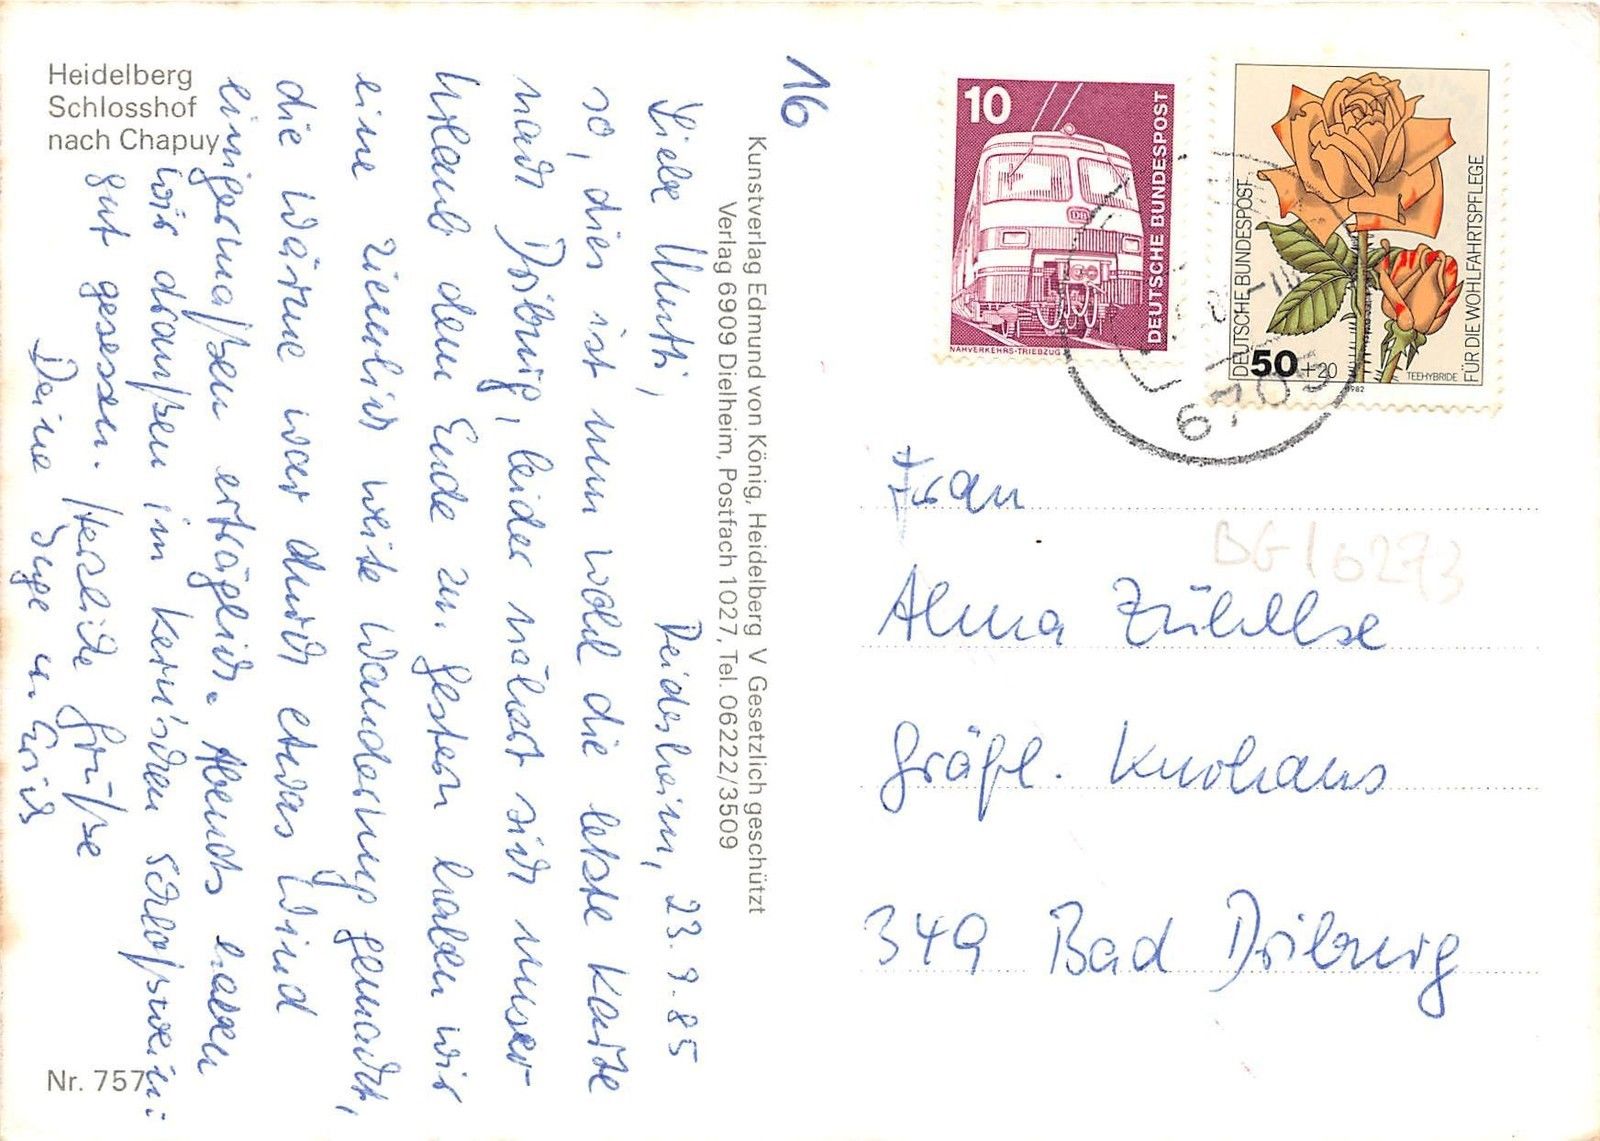 Heidelberg
Schlosshof
nach Chapuy
16
Deidesheim, 23.9.85
Liebe Mutti,
so, dies ist nun wohl die letzte Karte
nach Driburg, leider nähert sich unser
Urlaub dem Ende zu. Gestern haben wir
eine ziemlich weite Wanderung gemacht,
die Wärme war durch etwas Wind
einigermaßen erträglich. Abends haben
wir draußen im
gut gesessen. Herzliche Grüße
Deine Inge u. Erich
Nr. 757
Kunstverlag Edmund von König, Heidelberg V Gesetzlich geschützt
Verlag 6909 Dielheim, Postfach 1027, Tel. 06222/3509
10
DEUTSCHE BUNDESPOST
NAHVERKEHRS-TRIEBZUG
DB
DEUTSCHE BUNDESPOST
50 +20
1982
TEEHYBRIDE
FÜR DIE WOHLFAHRTSPFLEGE
Frau
Alma
Gräfl. Kurhaus
349 Bad Driburg
BG16273